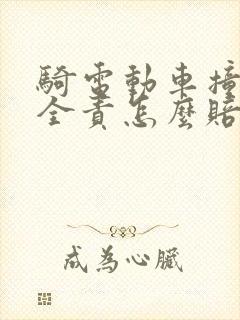 騎電動車撞
全責怎麼賠
成為心臟